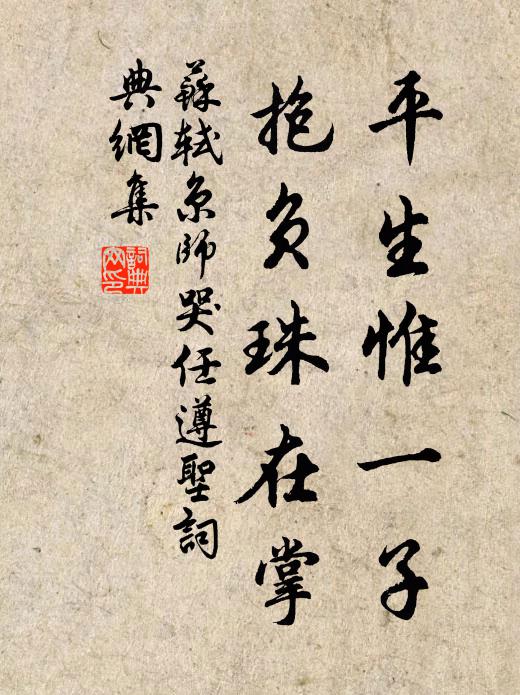 平生惟一子
抱負珠在掌
蘇軾京師哭任遵聖詞
典網集
詞典
网印